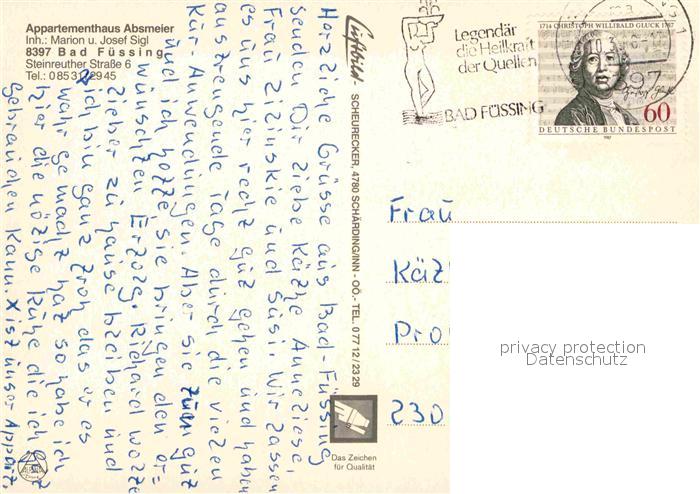 Appartementhaus Absmeier
Inh.: Marion u. Josef Sigl
8397 Bad Füssing
Steinreuther Straße 6
Tel.: 08531/2945
Herzliche Grüsse aus Bad-Füssing
senden Dir liebe Käthe Anneliese,
Frau Zizinskie und Susi. Wir lassen
es uns hier recht gut gehen und haben
anstrengende Tage durch die vielen
Kur-Anwendungen. Aber sie tun gut
und ich hoffe, sie bringen den er=
wünschten Erfolg. Richard wollte
lieber zu hause bleiben und
ich bin ganz froh das er es
wahr gemacht hat so habe ich
hier die nötige Ruhe die ich
gebrauchen kann. X ist unser Appart.
Luftbild SCHEURECKER, 4780 SCHÄRDING/INN - OÖ.- TEL. 07712/2329
Das Zeichen
für Qualität
Legendär
die Heilkraft
der Quellen
BAD FÜSSING
1714 CHRISTOPH WILLIBALD GLUCK 1787
60
DEUTSCHE BUNDESPOST
1987
Frau
Kät
Pro
230
privacy protection
Datenschutz